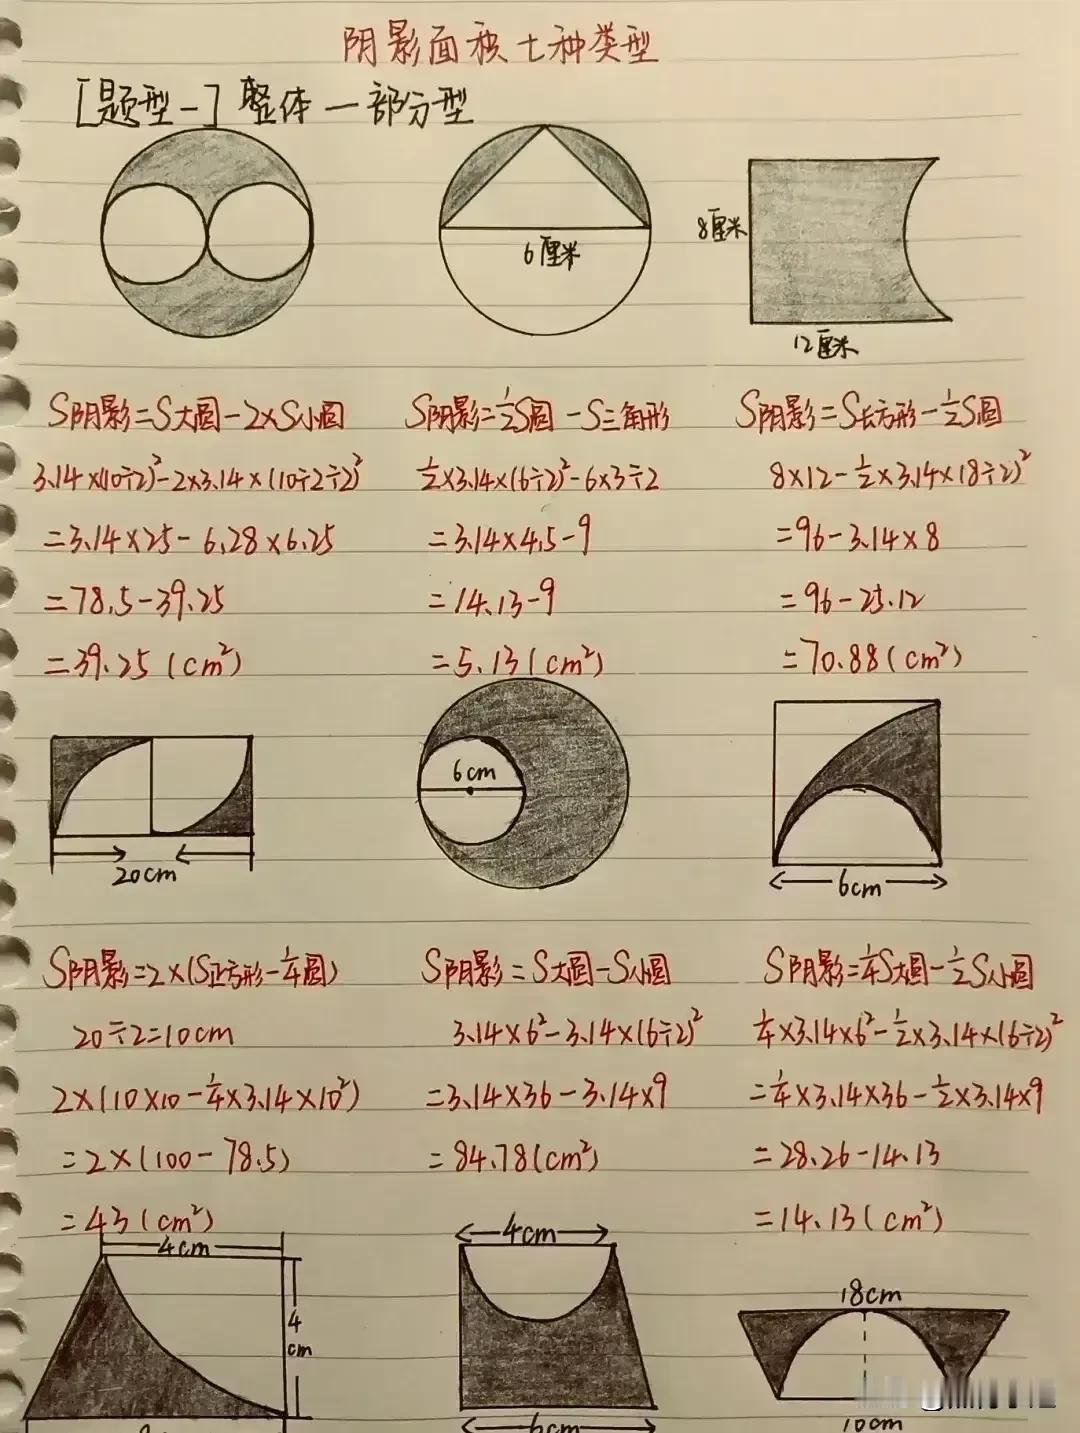 阴影面积七种类型
[题型一] 整体一部分型
6厘米
8厘米
12厘米
S阴影=S大圆-2×S小圆
3.14×(10÷2)²-2×3.14×(10÷2÷2)²
=3.14×25-6.28×6.25
=78.5-39.25
=39.25(cm²)
S阴影=½S圆-S三角形
½×3.14×(6÷2)²-6×3÷2
=3.14×4.5-9
=14.13-9
=5.13(cm²)
S阴影=S长方形-½S圆
8×12-½×3.14×(8÷2)²
=96-3.14×8
=96-25.12
=70.88(cm²)
20cm
6cm
6cm
S阴影=2×(S正方形-¼圆)
20÷2=10cm
2×(10×10-¼×3.14×10²)
=2×(100-78.5)
=43(cm²)
S阴影=S大圆-S小圆
3.14×6²-3.14×(6÷2)²
=3.14×36-3.14×9
=84.78(cm²)
S阴影=¼S大圆-½S小圆
¼×3.14×6²-½×3.14×(6÷2)²
=¼×3.14×36-½×3.14×9
=28.26-14.13
=14.13(cm²)
4cm
4
cm
4cm
6cm
18cm
10cm